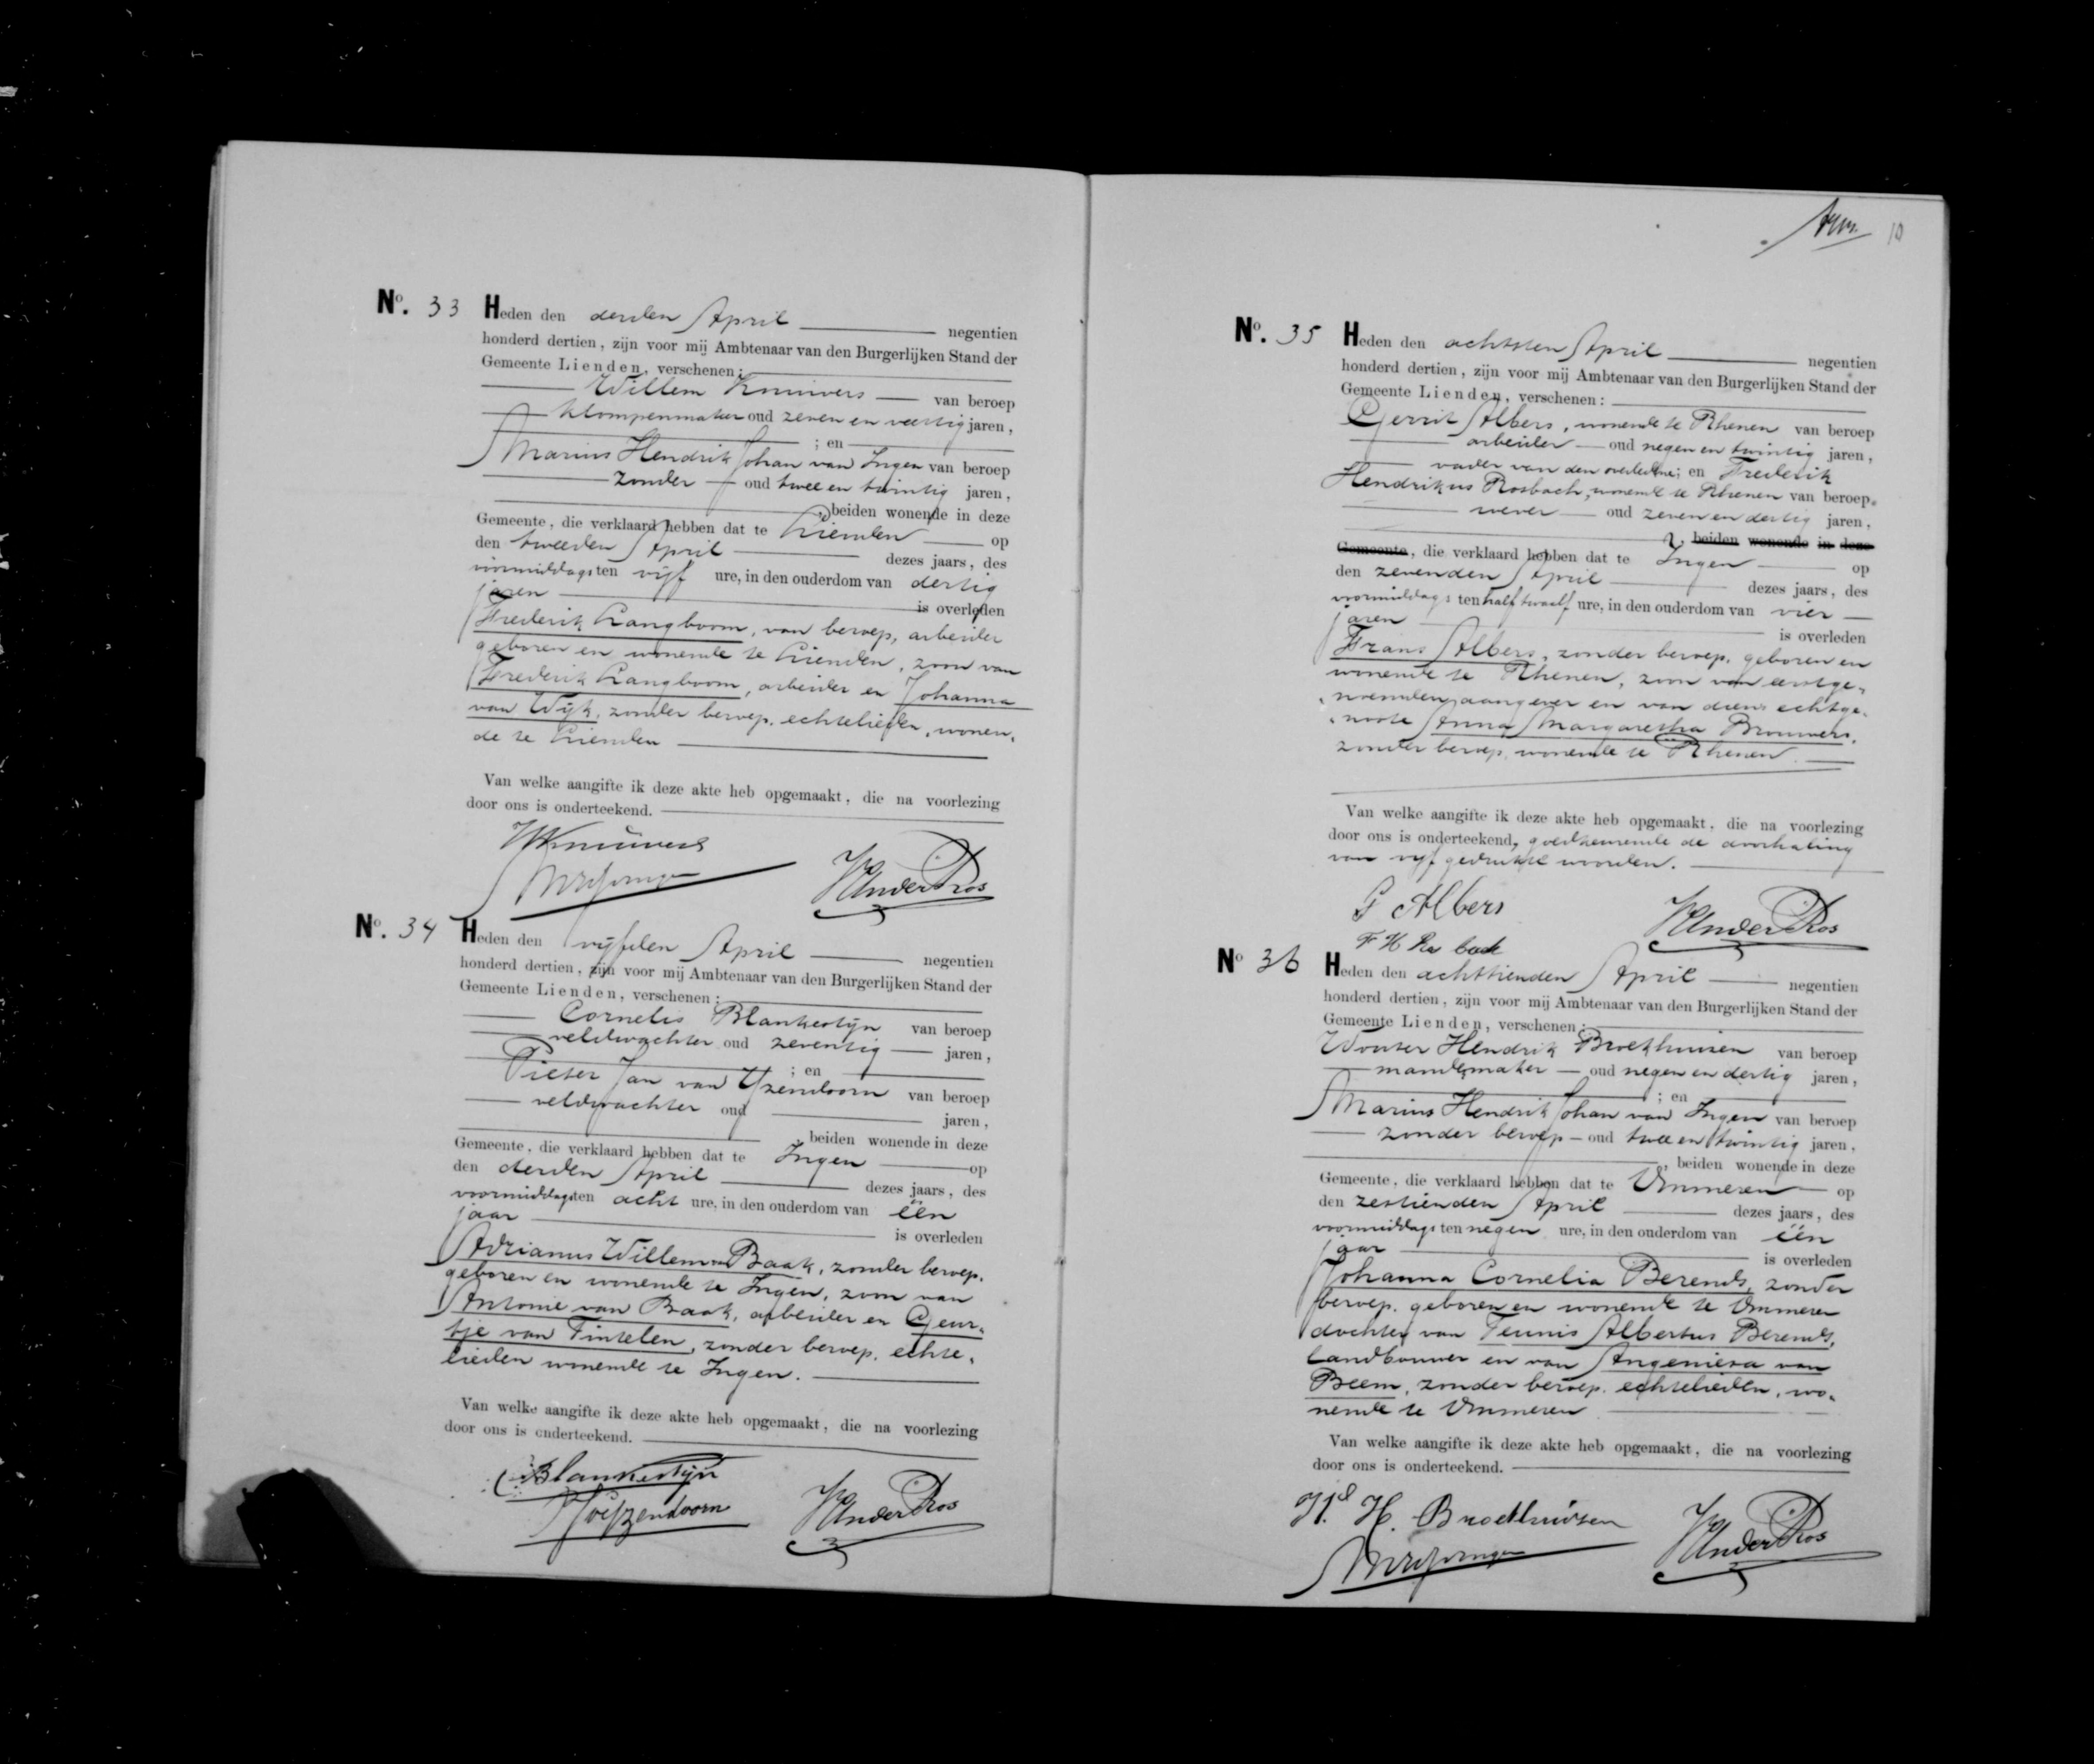 No. 33 Heden den derden April negentien
honderd dertien, zijn voor mij Ambtenaar van den Burgerlijken Stand der
Gemeente Lienden, verschenen:
Willem Kniuvers van beroep
klompenmaker oud zeven en veertig jaren,
; en
Marius Hendrik Johan van Ingen van beroep
zonder oud twee en twintig jaren,
, beiden wonende in deze
Gemeente, die verklaard hebben dat te Lienden op
den tweeden April dezes jaars, des
voormiddags ten vijf ure, in den ouderdom van dertig
jaren is overleden
Frederik Langboom, van beroep, arbeider
geboren en wonende te Lienden, zoon van
Frederik Langboom, arbeider en Johanna
van Wijk, zonder beroep, echtelieden, wonen,
de te Lienden
Van welke aangifte ik deze akte heb opgemaakt, die na voorlezing
door ons is onderteekend.
VanderRos
No. 34 Heden den vijfden April negentien
honderd dertien, zijn voor mij Ambtenaar van den Burgerlijken Stand der
Gemeente Lienden, verschenen:
Cornelis Blankestijn van beroep
veldwachter oud zeventig jaren,
; en
Pieter Jan van IJzendoorn van beroep
veldwachter oud jaren,
, beiden wonende in deze
Gemeente, die verklaard hebben dat te Ingen op
den derden April dezes jaars, des
voormiddags ten acht ure, in den ouderdom van één
jaar is overleden
Adrianus Willem van Baak, zonder beroep,
geboren en wonende te Ingen, zoon van
Antonie van Baak, arbeider en Geur-
tje van Tintelen, zonder beroep, echte,
lieden wonende te Ingen.
Van welke aangifte ik deze akte heb opgemaakt, die na voorlezing
door ons is onderteekend.
CBlankestijn
vIJzendoorn
VanderRos
10
No. 35 Heden den achtsten April negentien
honderd dertien, zijn voor mij Ambtenaar van den Burgerlijken Stand der
Gemeente Lienden, verschenen:
Gerrit Albers, wonende te Rhenen van beroep
arbeider oud negen en twintig jaren,
vader van den overledene; en Frederik
Hendrikus Rosbach, wonende te Rhenen van beroep
wever oud zeven en dertig jaren,
, beiden wonende in deze
Gemeente, die verklaard hebben dat te Ingen op
den zevenden April dezes jaars, des
voormiddags ten half twaalf ure, in den ouderdom van vier
jaren is overleden
Frans Albers, zonder beroep, geboren en
wonende te Rhenen, zoon van eerstge,
noemden aangever en van diens echtge,
noote Anna Margaretha Brouwers,
zonder beroep, wonende te Rhenen.
Van welke aangifte ik deze akte heb opgemaakt, die na voorlezing
door ons is onderteekend, goedkeurende de doorhaling
van vijf gedrukte woorden.
G Albers
F H Ros bach
VanderRos
No 36 Heden den achttienden April negentien
honderd dertien, zijn voor mij Ambtenaar van den Burgerlijken Stand der
Gemeente Lienden, verschenen:
Wouter Hendrik Broekhuisen van beroep
mandemaker oud negen en dertig jaren,
; en
Marius Hendrik Johan van Ingen van beroep
zonder beroep oud twee en twintig jaren,
, beiden wonende in deze
Gemeente, die verklaard hebben dat te Ommeren op
den zestienden April dezes jaars, des
voormiddags ten negen ure, in den ouderdom van één
jaar is overleden
Johanna Cornelia Berends, zonder
beroep, geboren en wonende te Ommeren
dochter van Teunis Albertus Berends,
landbouwer en van Angeniesa van
Beem, zonder beroep, echtelieden, wo,
nende te Ommeren
Van welke aangifte ik deze akte heb opgemaakt, die na voorlezing
door ons is onderteekend.
H. Broekhuisen
VanderRos